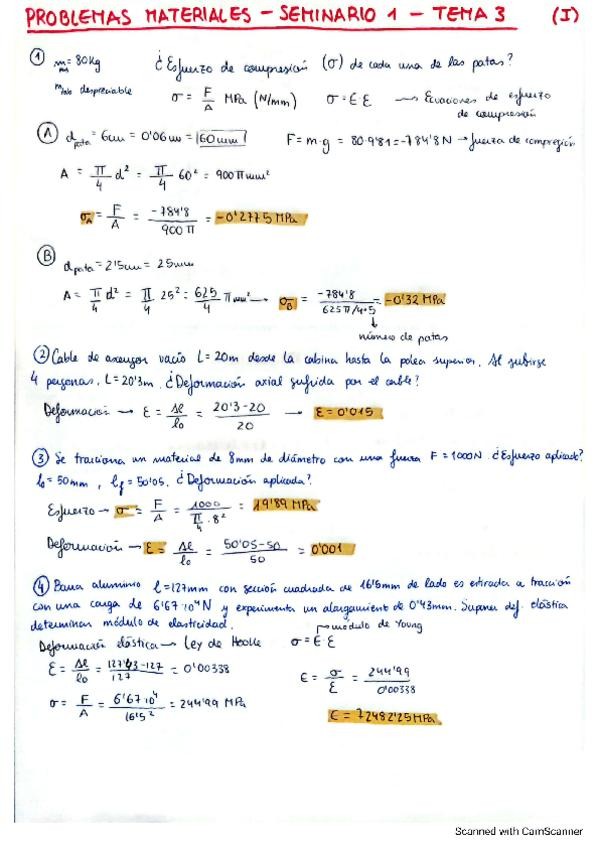 PROBLEMAS MATERIALES - SEMINARIO 1 - TEMA 3 (I)
① m = 80Kg ¿Esfuerzo de compresión (σ) de cada una de las patas?
despreciable σ = F/A MPa (N/mm) σ = E·ε → Ecuaciones de esfuerzo de compresión
Ⓐ d pata = 6cm = 0'06m = 60mm F = m·g = 80·9'81 = -784'8N → fuerza de compresión
A = π/4 d² = π/4 60² = 900π mm²
σA = F/A = -784'8/900π = -0'2775 MPa
Ⓑ d pata = 2'5cm = 25mm
A = π/4 d² = π/4 25² = 625/4 π mm² → σB = -784'8/625π/4·5 = -0'32 MPa
número de patas
② Cable de ascensor vacío L = 20m desde la cabina hasta la polea superior. Al subirse
4 personas, L = 20'3m. ¿Deformación axial sufrida por el cable?
Deformación → ε = Δl/l₀ = 20'3-20/20 → ε = 0'015
③ Se tracciona un material de 8mm de diámetro con una fuerza F = 1000N. ¿Esfuerzo aplicado?
l₀ = 50mm, lf = 50'05. ¿Deformación aplicada?
Esfuerzo → σ = F/A = 1000/π/4·8² = 19'89 MPa
Deformación → ε = Δl/l₀ = 50'05-50/50 = 0'001
④ Barra aluminio l = 127mm con sección cuadrada de 16'5mm de lado es estirada a tracción
con una carga de 6'67·10⁴N y experimenta un alargamiento de 0'43mm. Suponer def. elástica
determinar módulo de elasticidad. módulo de Young
Deformación elástica → Ley de Hooke σ = E·ε
ε = Δl/l₀ = 127'43-127/127 = 0'00338 E = σ/ε = 244'99/0'00338
σ = F/A = 6'67·10⁴/16'5² = 244'99 MPa
E = 72482'25MPa
Scanned with CamScanner